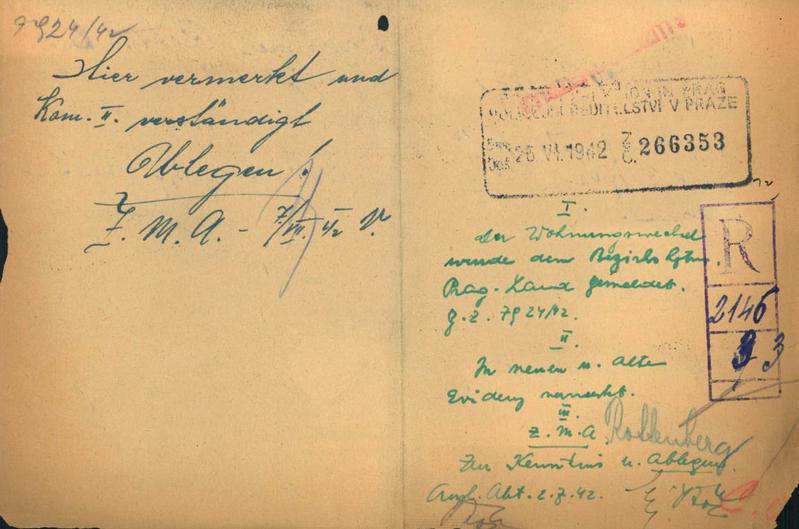 7924/42
Hier vermerkt und
Kom. II. verständigt
Ablegen!
Z. M. A. - 7/VIII. 42
IN PRAG
ŘEDITELSTVÍ V PRAZE
25 VI. 1942 266353
I.
der Wohnungswechsel
wurde dem Bezirks
Prag-Land gemeldet.
G. Z. 7924/42.
II.
In neuen u. alten
Evidenz vermerkt.
III.
Z. M. A.
Zur Kenntnis u. Ablegung.
Abt. 2. 7. 42.
R
2146
3 3